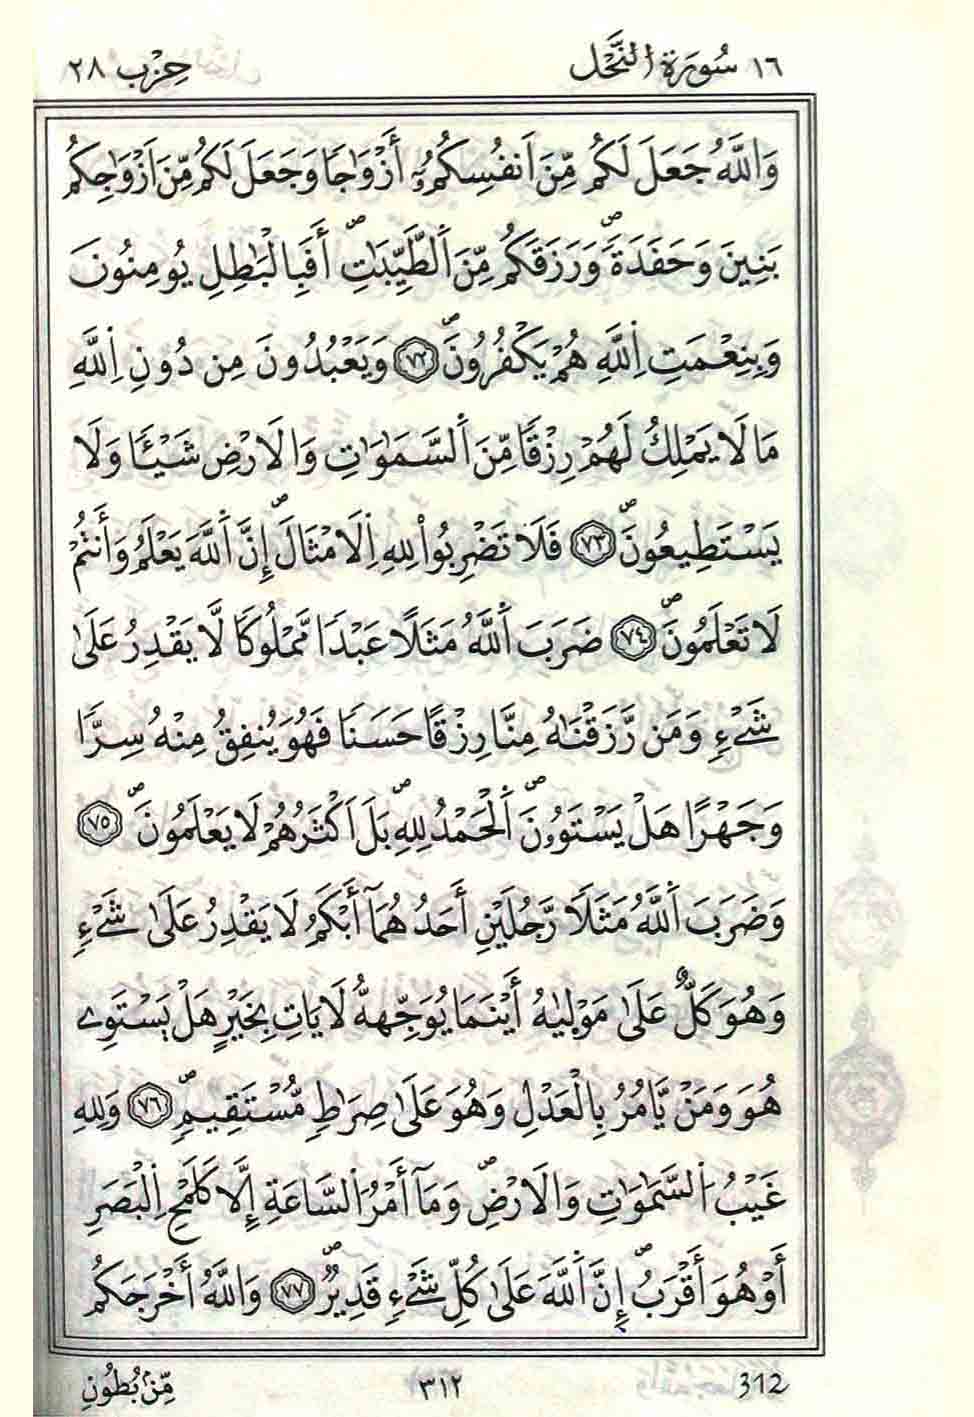 ١٦ سُورَةُ النَّحْلِ حِزْب ٢٨
وَاللَّهُ جَعَلَ لَكُم مِّنَ اَنفُسِكُمُۥٓ أَزْوَٰجٗا وَجَعَلَ لَكُم مِّنَ اَزْوَٰجِكُم
بَنِينَ وَحَفَدَةٗۖ وَرَزَقَكُم مِّنَ اَلطَّيِّبَٰتِۖ أَفَبِالْبَٰطِلِ يُومِنُونَ
وَبِنِعْمَتِ اِللَّهِ هُمْ يَكْفُرُونَۖ ٧٢ وَيَعْبُدُونَ مِن دُونِ اِللَّهِ
مَا لَا يَمْلِكُ لَهُمْ رِزْقٗا مِّنَ اَلسَّمَٰوَٰتِ وَالَارْضِ شَيْـٔٗا وَلَا
يَسْتَطِيعُونَۖ ٧٣ فَلَا تَضْرِبُواْ لِلهِ اِلَامْثَالَۖ إِنَّ اَللَّهَ يَعْلَمُ وَأَنتُمْ
لَا تَعْلَمُونَۖ ٧٤ ضَرَبَ اَللَّهُ مَثَلًا عَبْدٗا مَّمْلُوكٗا لَّا يَقْدِرُ عَلَىٰ
شَےْءٖ وَمَن رَّزَقْنَٰهُ مِنَّا رِزْقًا حَسَنٗا فَهُوَ يُنفِقُ مِنْهُ سِرّٗا
وَجَهْرًا هَلْ يَسْتَوُۥنَۖ اَلْحَمْدُ لِلهِۖ بَلَ اَكْثَرُهُمْ لَا يَعْلَمُونَۖ ٧٥
وَضَرَبَ اَللَّهُ مَثَلٗا رَّجُلَيْنِ أَحَدُهُمَآ أَبْكَمُ لَا يَقْدِرُ عَلَىٰ شَےْءٖ
وَهُوَ كَلٌّ عَلَىٰ مَوْلِيٰهُ أَيْنَمَا يُوَجِّههُّ لَا يَاتِ بِخَيْرٍ هَلْ يَسْتَوِے
هُوَ وَمَنْ يَّامُرُ بِالْعَدْلِ وَهُوَ عَلَىٰ صِرَٰطٖ مُّسْتَقِيمٖۖ ٧٦ وَلِلهِ
غَيْبُ اُلسَّمَٰوَٰتِ وَالَارْضِۖ وَمَآ أَمْرُ اُلسَّاعَةِ إِلَّا كَلَمْحِ اِلْبَصَرِ
أَوْ هُوَ أَقْرَبُۖ إِنَّ اَللَّهَ عَلَىٰ كُلِّ شَےْءٖ قَدِيرٞۖ ٧٧ وَاللَّهُ أَخْرَجَكُم
312 ٣١٢ مِّنۢ بُطُونِ